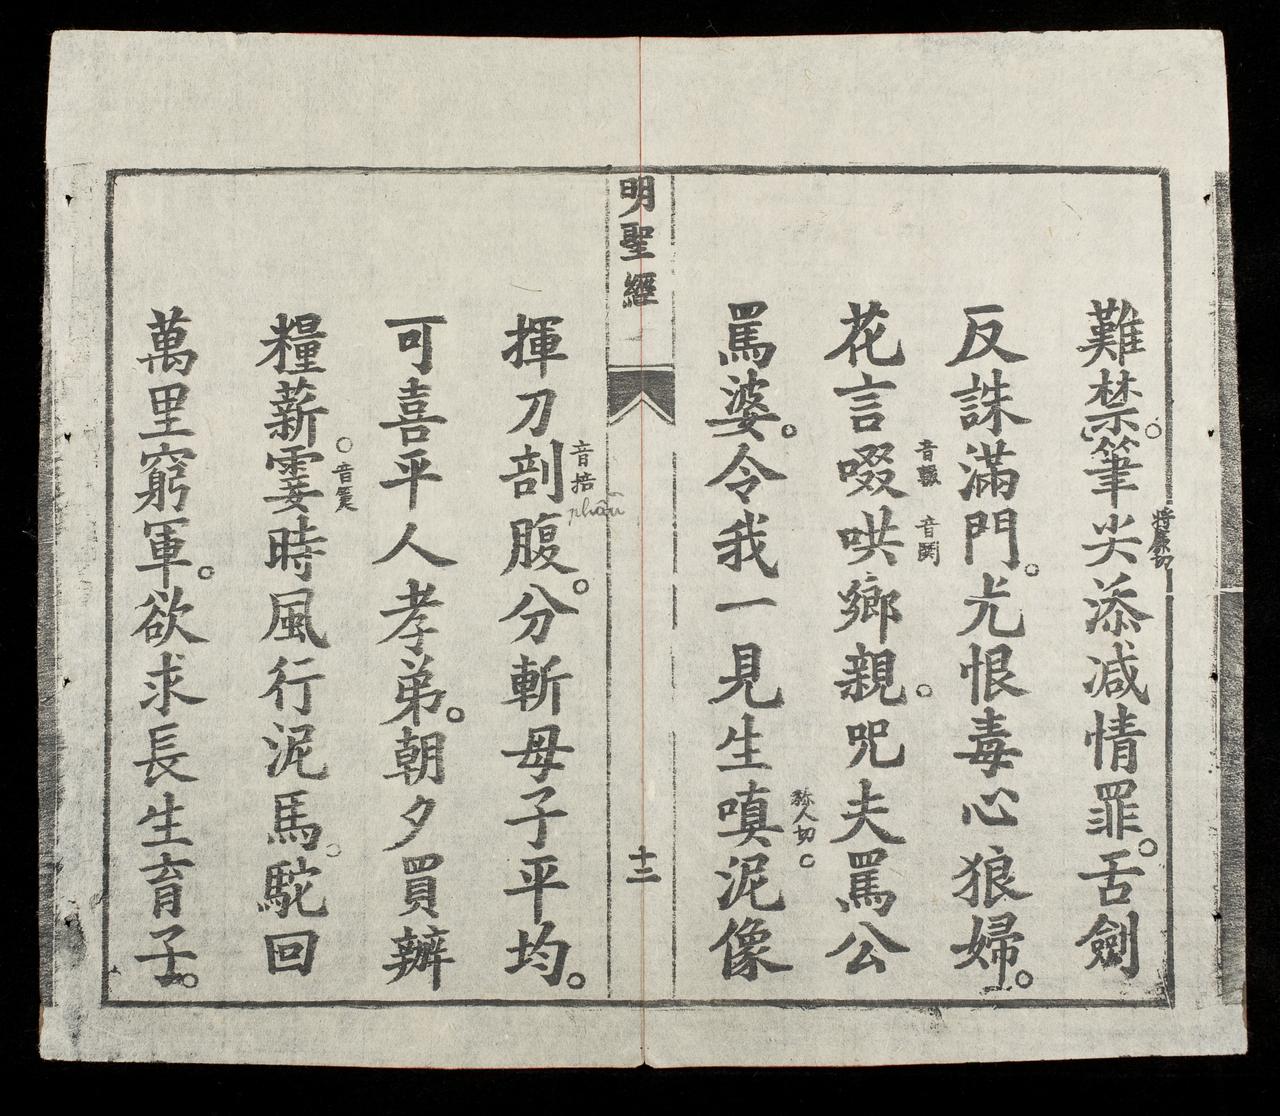 難禁。筆尖添減情罪。舌劍
將廉切
反誅滿門。尤恨毒心狼婦。
花言啜哄鄉親。咒夫罵公
音輟
音鬨
罵婆。令我一見生嗔泥像
稱人切。
明聖經
十二
揮刀剖腹。分斬母子平均。
音掊
phẫu
可喜平人孝弟。朝夕買辦
糧薪。霎時風行泥馬。駝回
音箑
萬里窮軍。欲求長生育子。